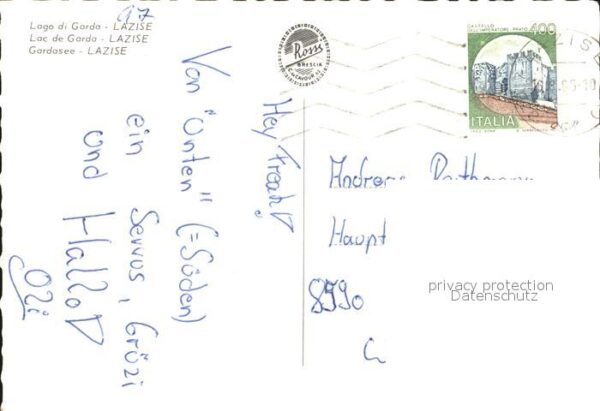 97
Lago di Garda - LAZISE
Lac de Garda - LAZISE
Gardasee - LAZISE
Ross
BRESCIA
CASTELLO
DELL'IMPERATORE · PRATO
400
ITALIA
LAZISE
Hey Freak!
Von "Unten" (=Süden)
ein Servus, Grüzi
und Hallo!
Olli
Andreas
Haupt
8590
privacy protection
Datenschutz